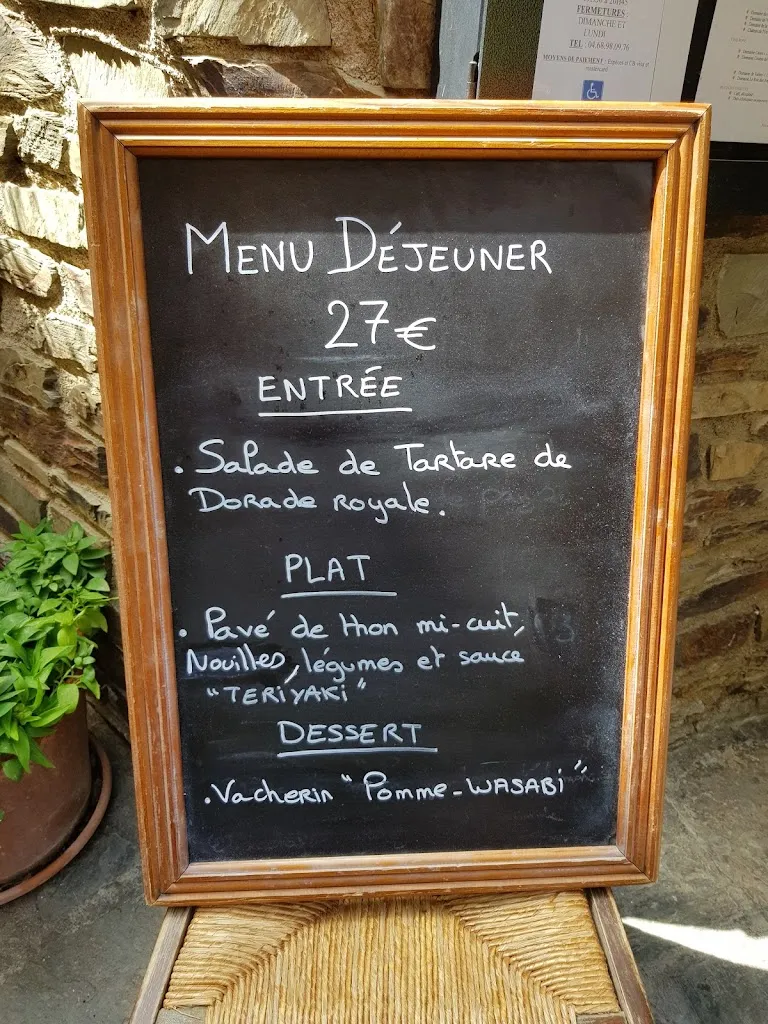 FERMETURES :
DIMANCHE ET
LUNDI
TEL : 04.68.98.09.76
MOYENS DE PAIEMENT :
MENU DÉJEUNER
27€
ENTRÉE
. Salade de Tartare de
Dorade royale.
PLAT
. Pavé de thon mi-cuit,
Nouilles, légumes et sauce
"TERIYAKI"
DESSERT
. Vacherin "Pomme-WASABI"